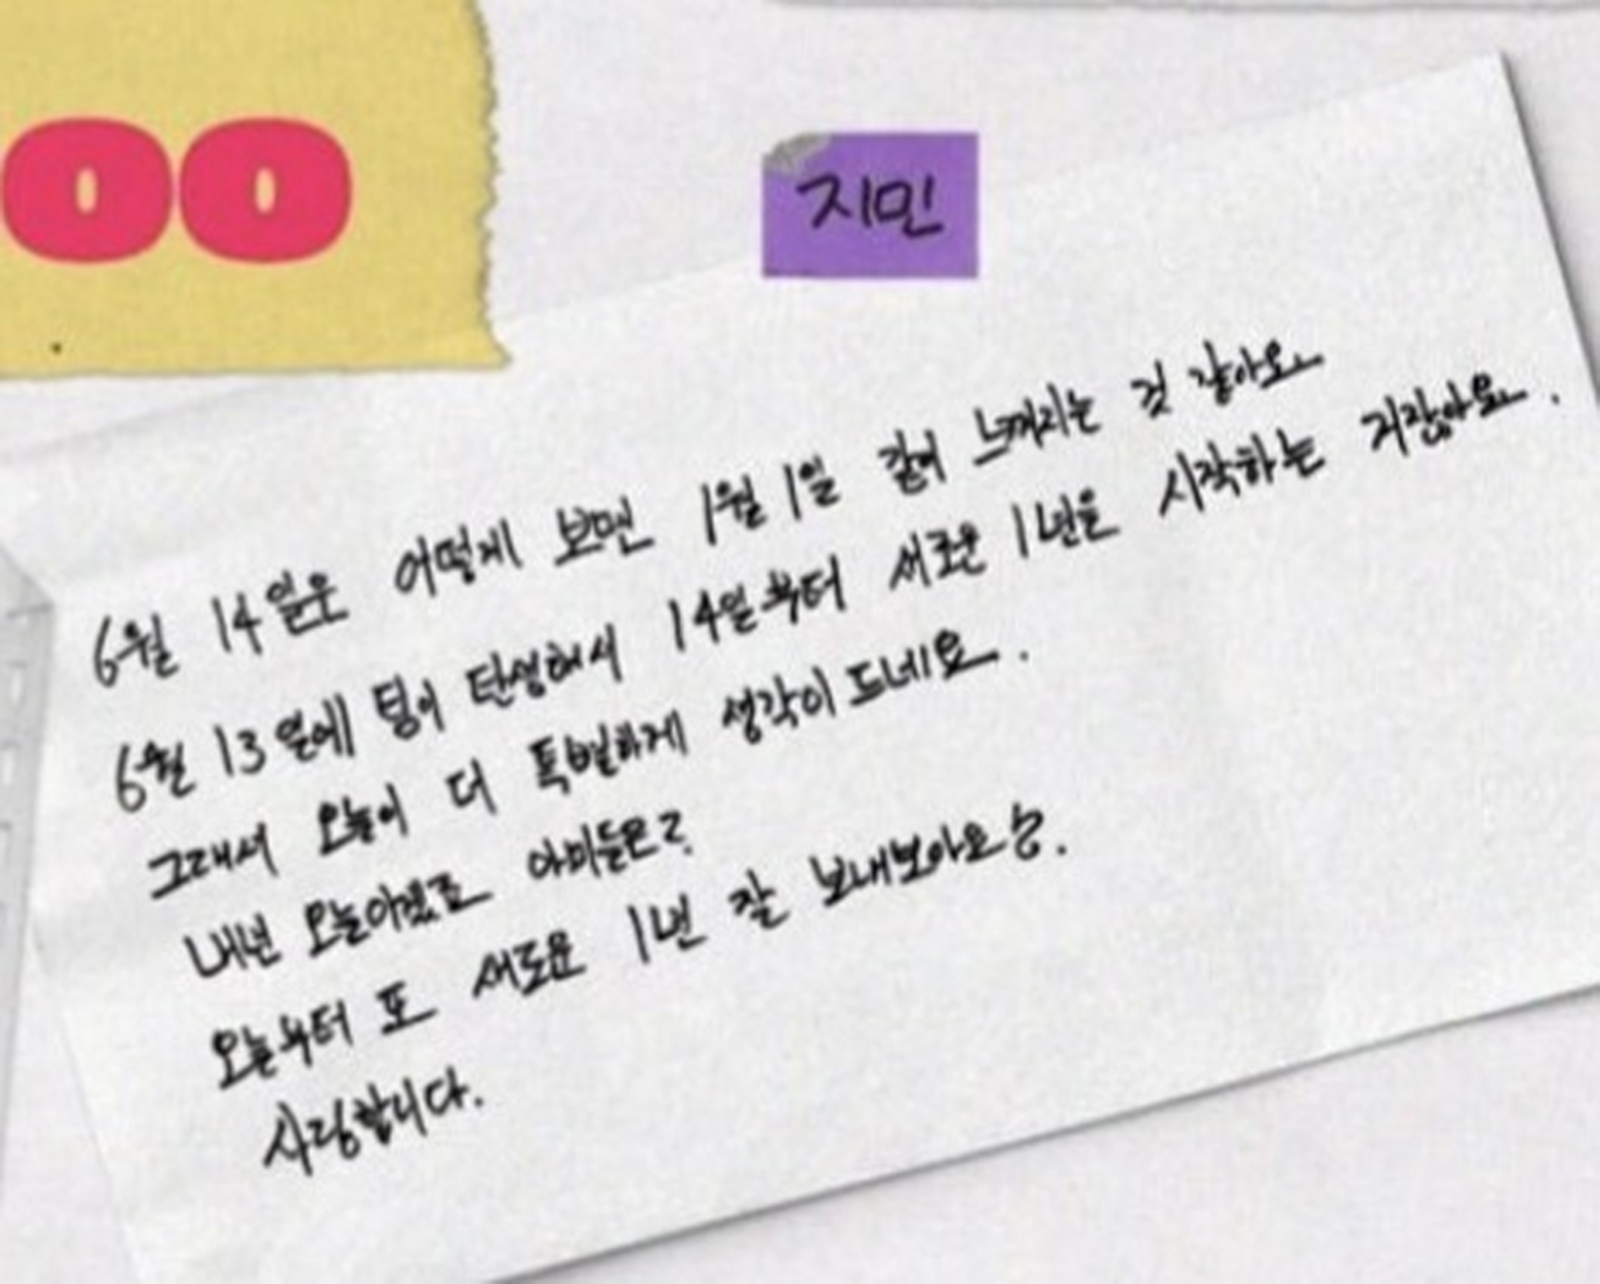 00
지민
6월 14일은 어떻게 보면 1월 1일 같이 느껴지는 것 같아요
6월 13일에 팀이 탄생해서 14일부터 새로운 1년을 시작하는 거잖아요.
그래서 오늘이 더 특별하게 생각이 드네요.
내년 오늘이겠죠 아미들은?
오늘부터 또 새로운 1년 잘 보내보아요
사랑합니다.